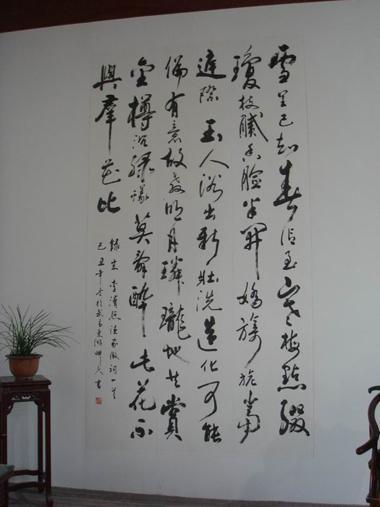 雪里已知春信至寒梅點綴
瓊枝膩香臉半開嬌旖旎當
庭際玉人浴出新妝洗造化可能
偏有意故教明月瓏玲地共賞
金樽沉綠蟻莫辭醉此花不
與群花比
錄宋李清照漁家傲詞一首
己丑年冬於武